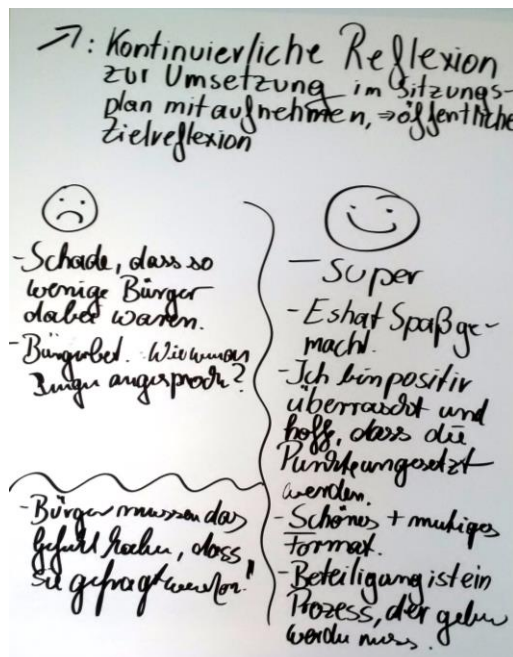 ↗: Kontinuierliche Reflexion
zur Umsetzung im Sitzungs-
plan mitaufnehmen, ⇒ öffentliche
Zielreflexion
- Schade, dass so
wenige Bürger
dabei waren.
- Bürgerbet. Wie
angesproch?
- Bürger müssen das
Gefühl haben, dass
sie gefragt werden!
- Super
- Es hat Spaß ge-
macht.
- Ich bin positiv
überrascht und
hoff, dass die
Punkte umgesetzt
werden.
- Schönes + mutiges
Format.
- Beteiligung ist ein
Prozess, der
werden muss.